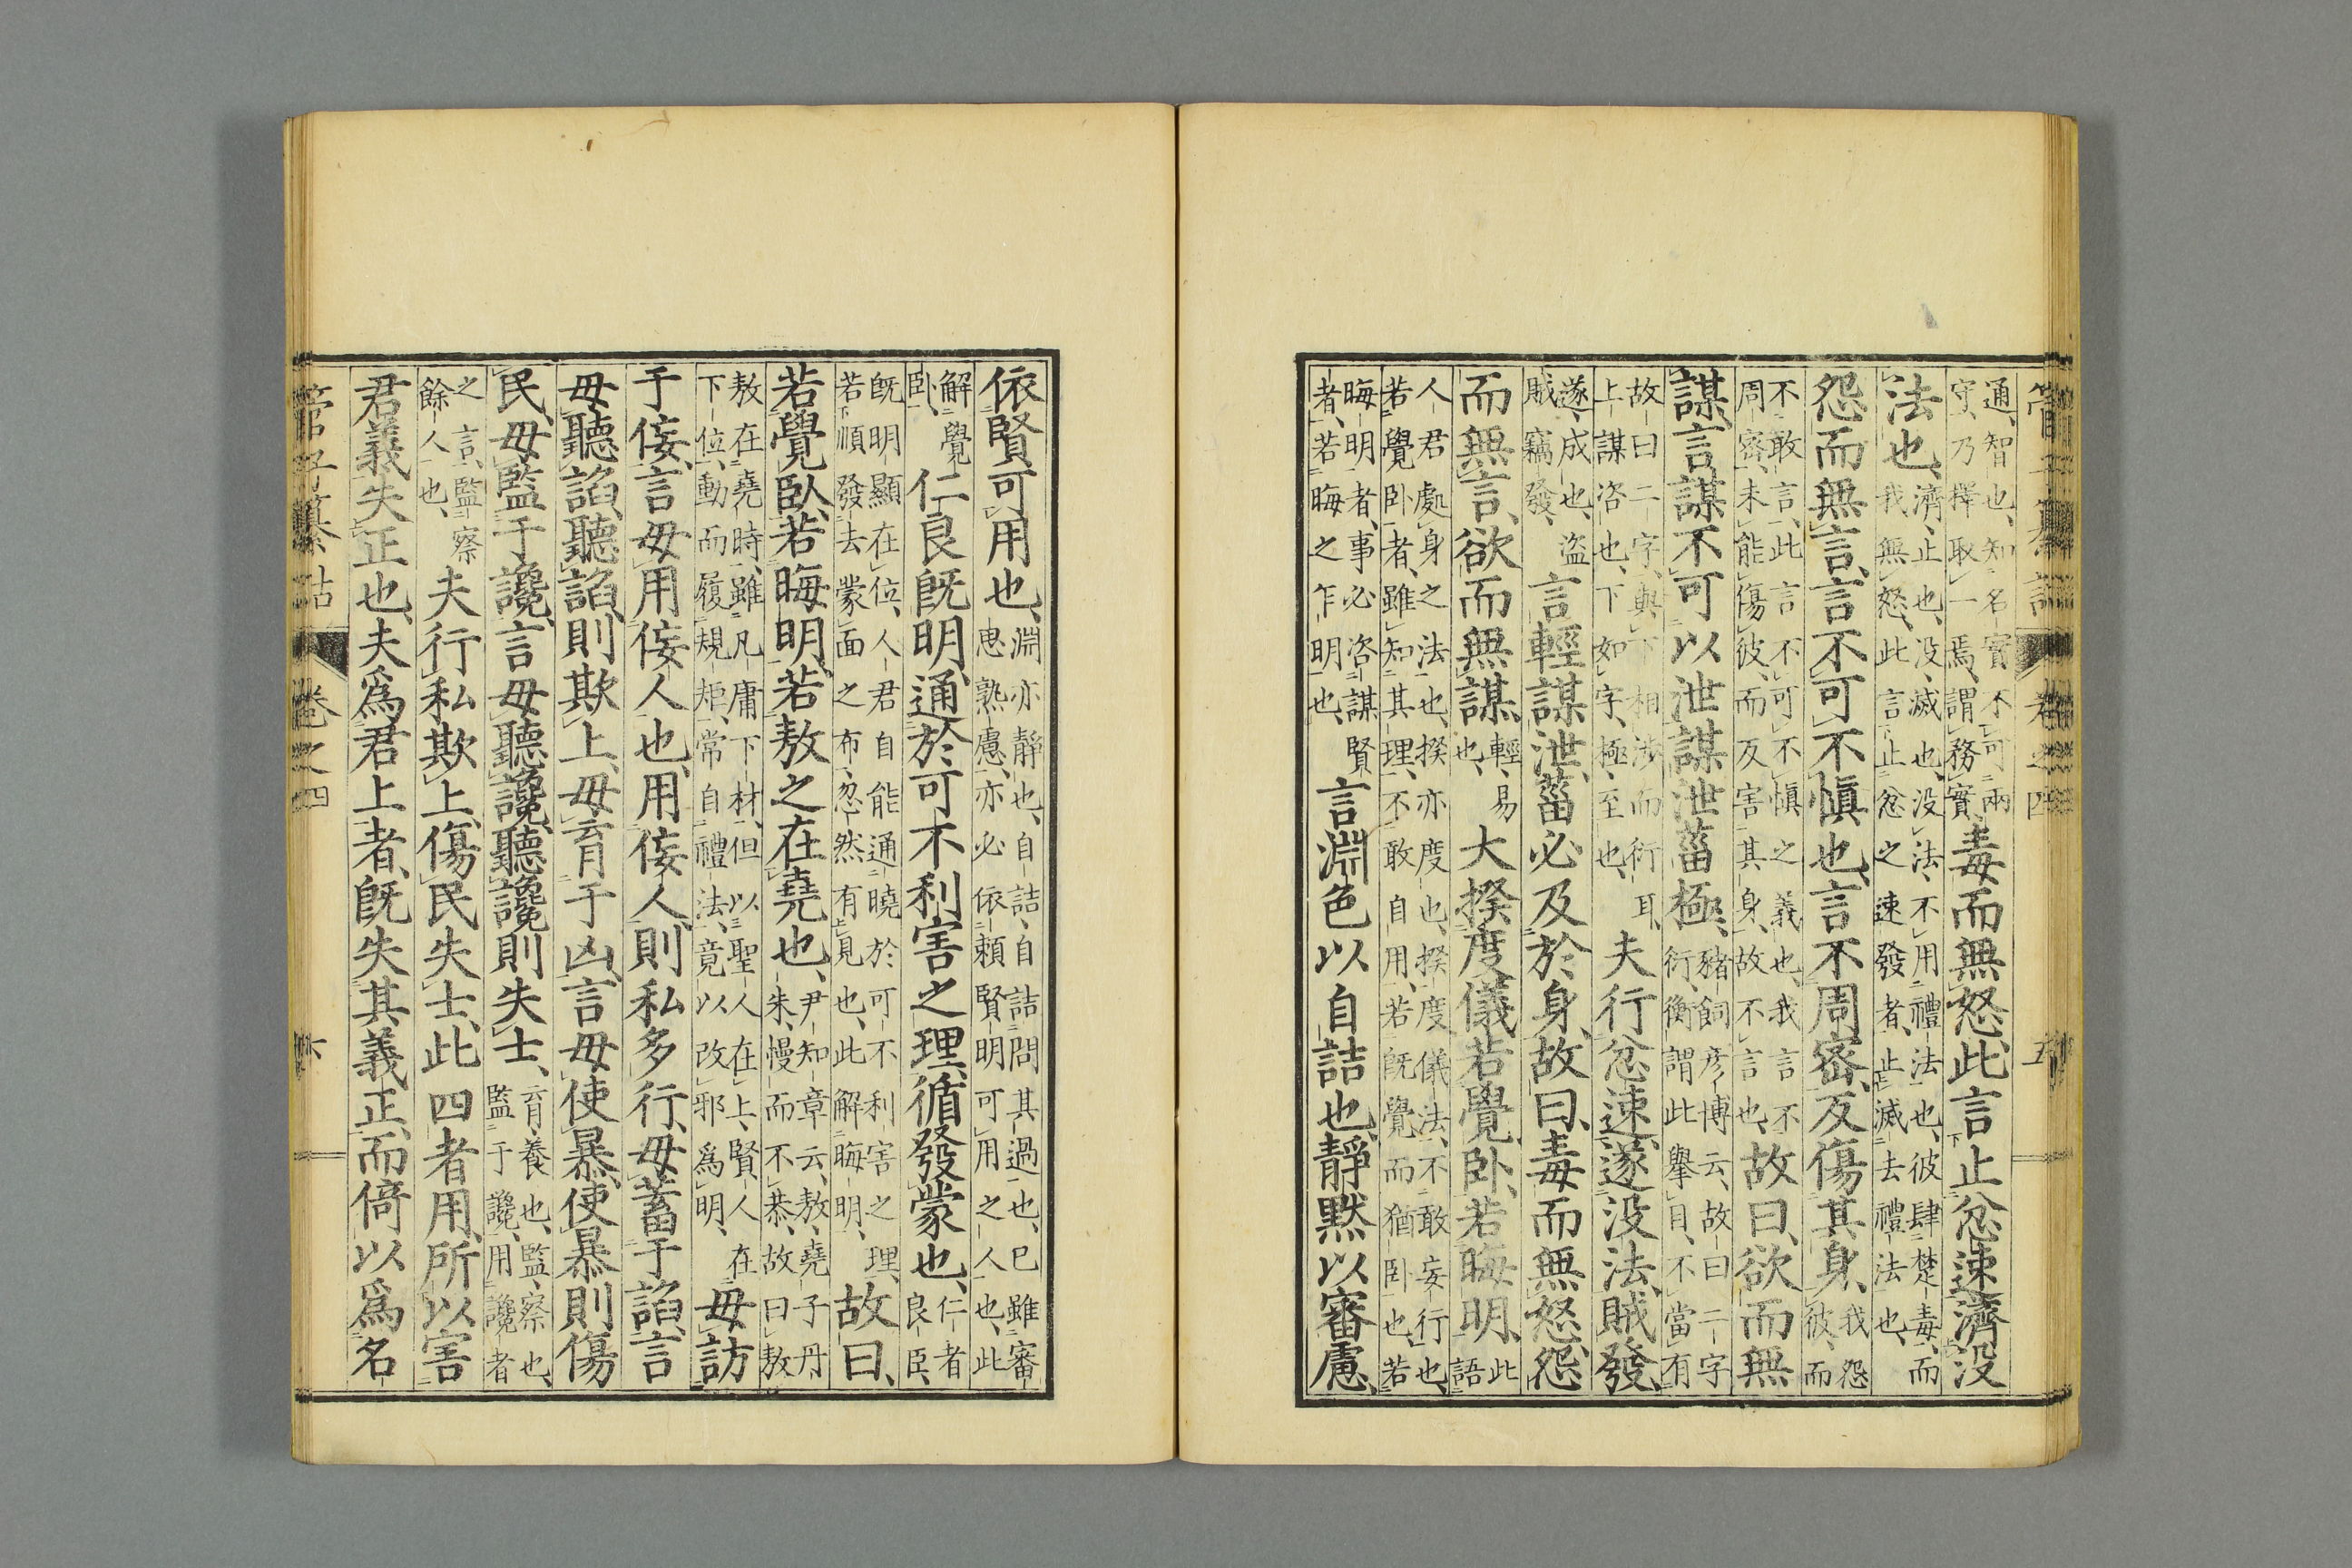 管子纂詁 卷之四 五
通、智也、知名實不可兩
守、乃擇取一焉、謂務實、毒而無怒、此言止忿速濟没
法也、濟、止也、没、滅也、没法、不用禮法也、彼肆楚毒、而
我無怒、此言止忿之速發者、止滅去禮法也、
怨而無言、言不可不愼也、言不周密、反傷其身、我怨
彼、而
不敢言、此言不可不愼之義也、我言不
周密、未能傷彼、而反害其身、故不言也、故曰、欲而無
謀、言謀不可以泄、謀泄菑極、豬飼彦博云、故曰二字
衍、衡謂此擧目、不當有
故曰二字、與下相渉而衍耳、
上謀咨也、下如字、極、至也、夫行忿速、遂没法、賊發、
遂、成也、盗
賊竊發、言輕謀泄、菑必及於身、故曰、毒而無怒、怨
而無言、欲而無謀、輕、易
也、大揆度儀、若覺卧、若晦明、此
語
人君處身之法也、揆亦度也、揆度儀法、不敢妄行也、
若覺卧者、雖知其理、不敢自用、若既覺而猶卧也、若
晦明者、事必咨謀賢
者、若晦之乍明也、言淵色以自詰也、靜默以審慮、
依賢可用也、淵亦靜也、自詰、自詰問其過也、已雖審
思熟慮、亦必依頼賢明可用之人也、此
解覺
卧、仁良既明、通於可不利害之理、循發蒙也、仁者
良臣、
既明顯在位、人君自能通曉於可不利害之理、
若順發去蒙面之布、忽然有見也、此解晦明、故曰、
若覺臥、若晦明、若敖之在堯也、尹知章云、敖、堯子丹
朱、慢而不恭、故曰敖
敖在堯時、雖凡庸下材、但以聖人在上、賢人在
下位、動而履規矩、常自禮法、竟以改邪爲明、毋訪
于佞、言毋用佞人也、用佞人、則私多行、毋蓄于諂、言
毋聽諂、聽諂、則欺上、毋育于凶、言毋使暴、使暴則傷
民、毋監于讒、言毋聽讒、聽讒則失士、育、養也、監、察也、
監于讒、用讒者
之言、監察
餘人也、夫行私欺上、傷民失士、此四者用、所以害
君義失正也、夫爲君上者、既失其義正、而倚以爲名
管子纂詁 卷之四 六